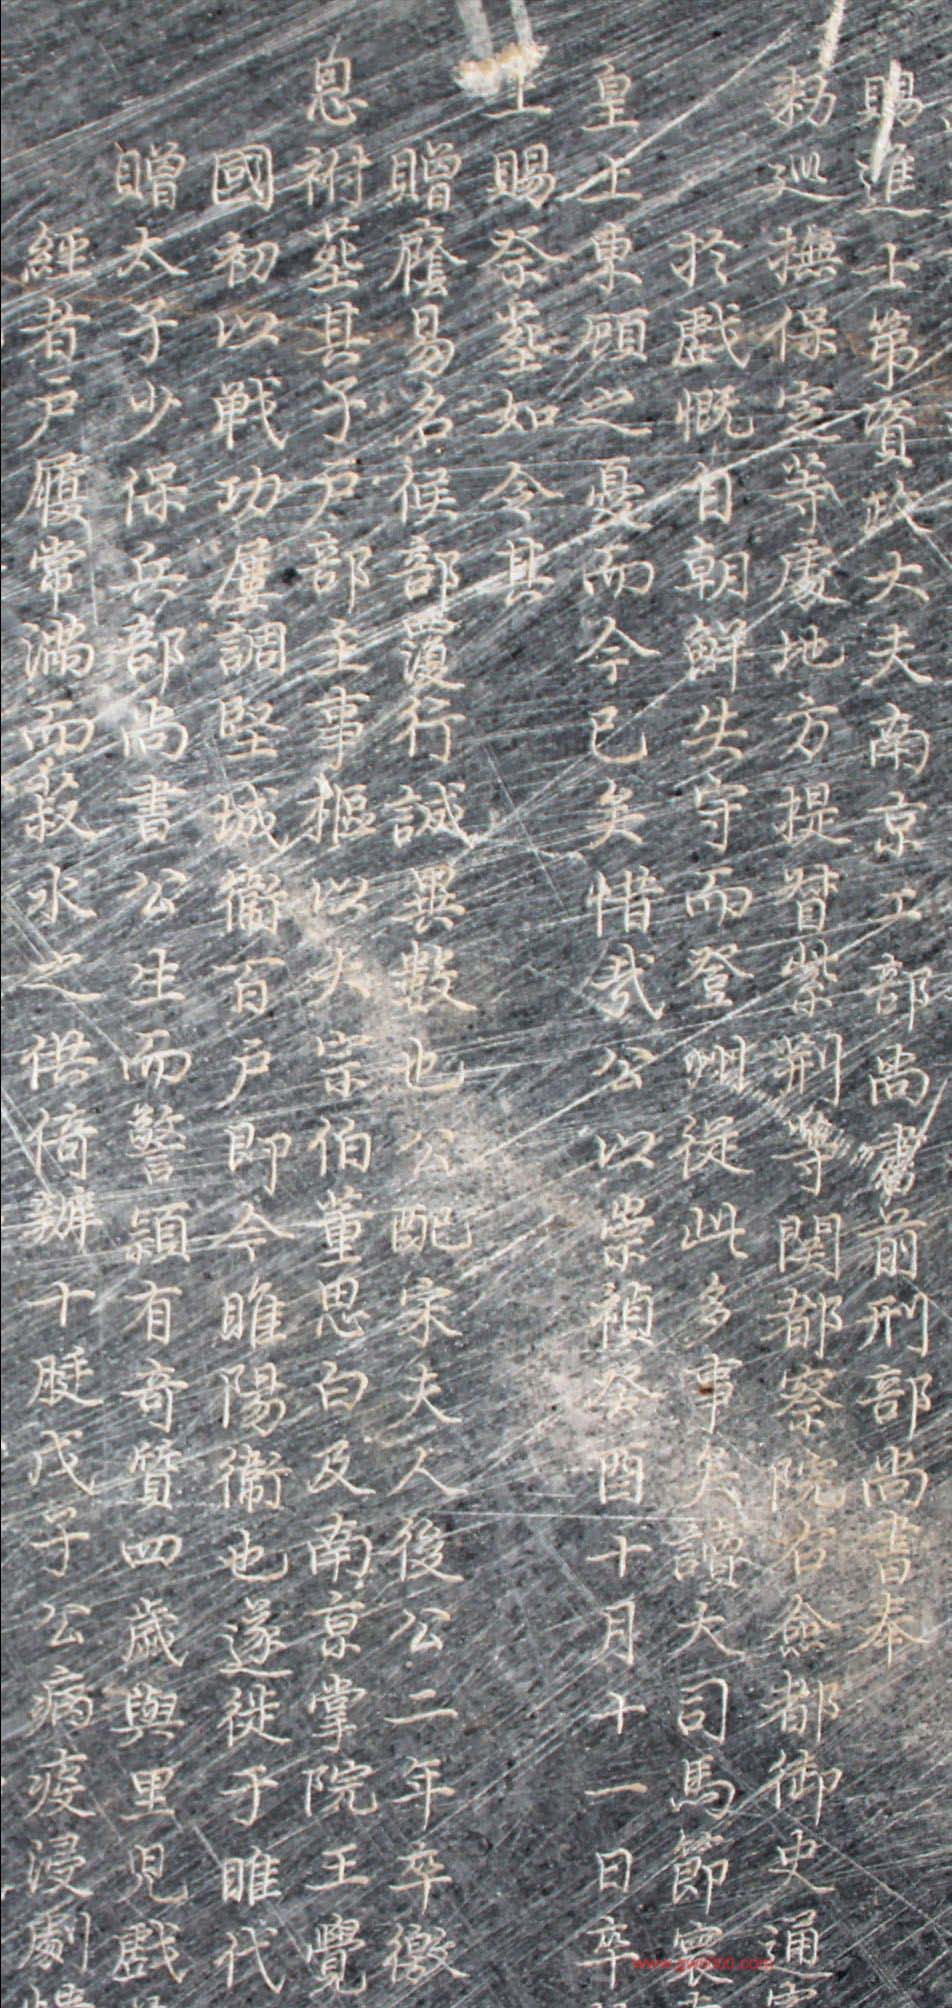 賜進士第資政大夫南京工部尚書前刑部尚書奉
勑巡撫保定等處地方提督紫荆等関都察院右僉都御史通
於戲慨自朝鮮失守而登州從此多事矣讀大司馬節寰
皇上東顧之憂而今已矣惜哉公以崇禎癸酉十月十一日卒
上賜祭塟如令其
贈廕易名候部覆行誠異數也公配宋夫人後公二年卒徼
恩祔塟其子戶部主事樞以大宗伯董思白及南京掌院王覺
國初以戰功屢調堅城衛百戶即今睢陽衛也遂徙于睢代
贈太子少保兵部尚書公生而警頴有奇質四歲與里兒戲
經者戶屨常滿而菽水之供倚辦十脡戊子公病疫浸劇
www.gwb800.com